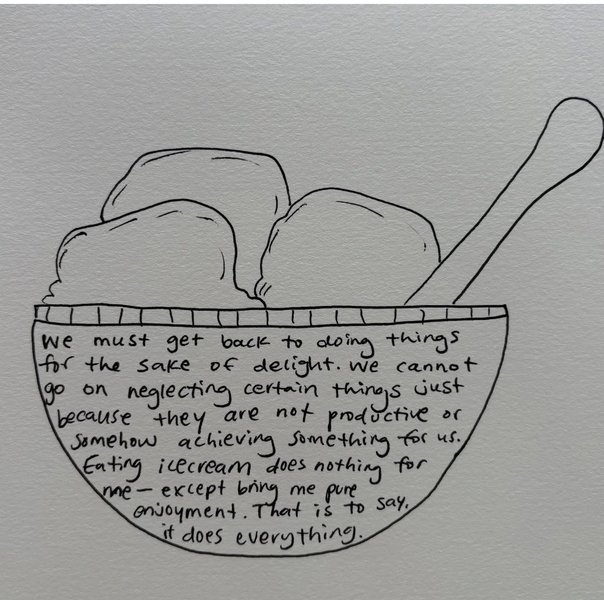 We must get back to doing things
for the sake of delight. We cannot
go on neglecting certain things just
because they are not productive or
somehow achieving something for us.
Eating icecream does nothing for
me — except bring me pure
enjoyment. That is to say,
it does everything.